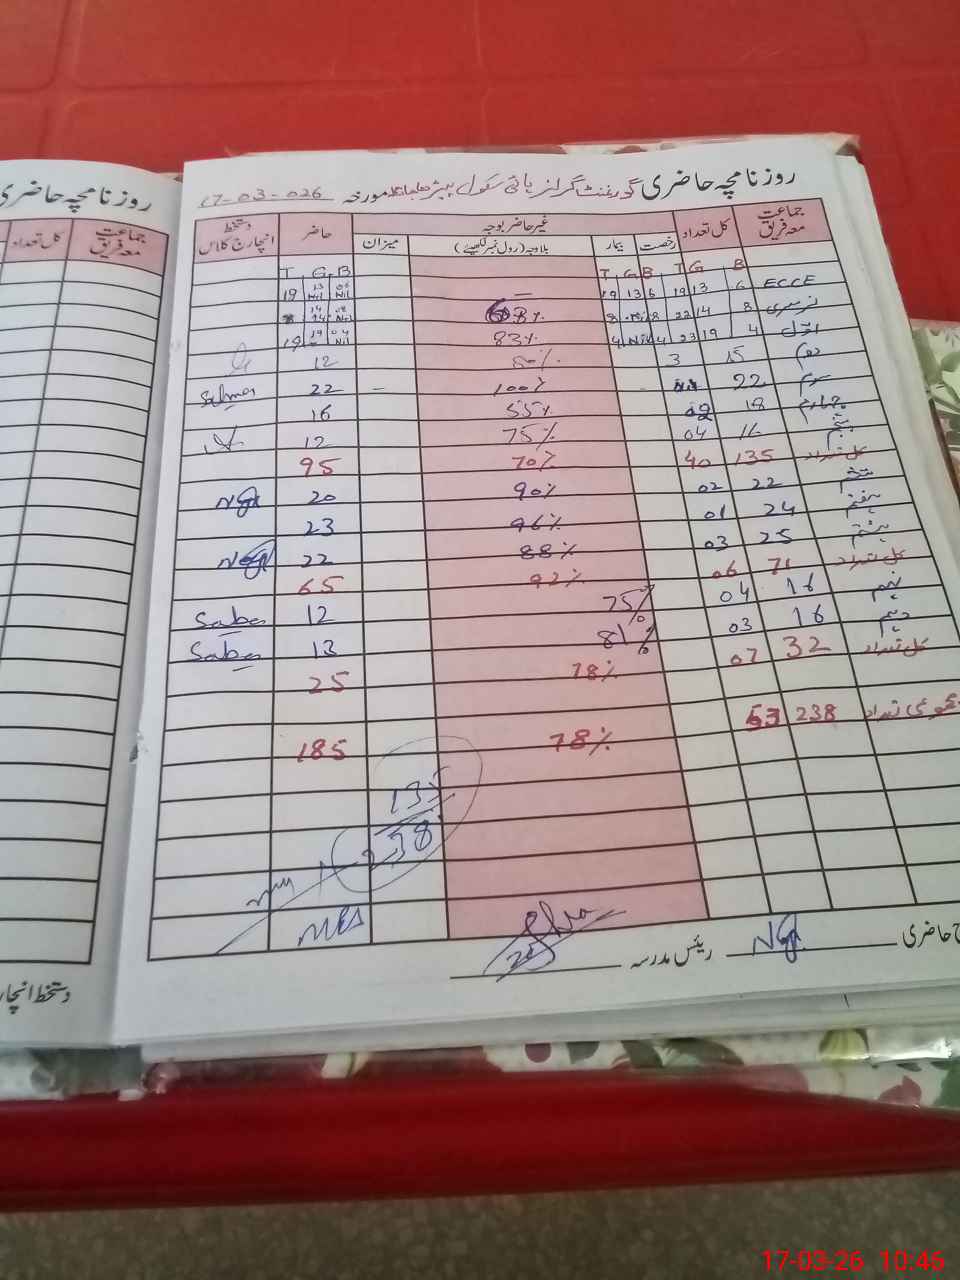 روزنامچہ حاضری گورنمنٹ گرلز ہائی سکول مورخہ 17-03-026
جماعت معہ فریق کل تعداد غیر حاضر بوجہ حاضر دستخط انچارج کلاس
رخصت بیمار بلاوجہ (رول نمبر لکھیئے) میزان
B G T B G T B G T
ECCE 6 13 19 6 13 19 — 06 Nil 13 Nil 19
نرسری 8 14 22 8 Nil 8
اول 4 19 23 4 Nil 4 83% 04 Nil 19 19
دوم 15 3 80% 12
سوم 22 Nil 100% – 22 Salma
چہارم 18 02 55% 16
پنجم 16 04 75% 12
کل تعداد 135 40 70% 95
ششم 22 02 90% 20
ہفتم 24 01 96% 23
ہشتم 25 03 88% 22
کل تعداد 71 06 92% 65
نہم 16 04 75% 12 Saba
دہم 16 03 81% 13 Saba
کل تعداد 32 07 78% 25
مجموعی تعداد 238 53 78% 185
135
238
حاضری
رئیس مدرسہ
روزنامچہ حاضری
جماعت معہ فریق کل تعداد
دستخط انچارج
17-03-26 10:46